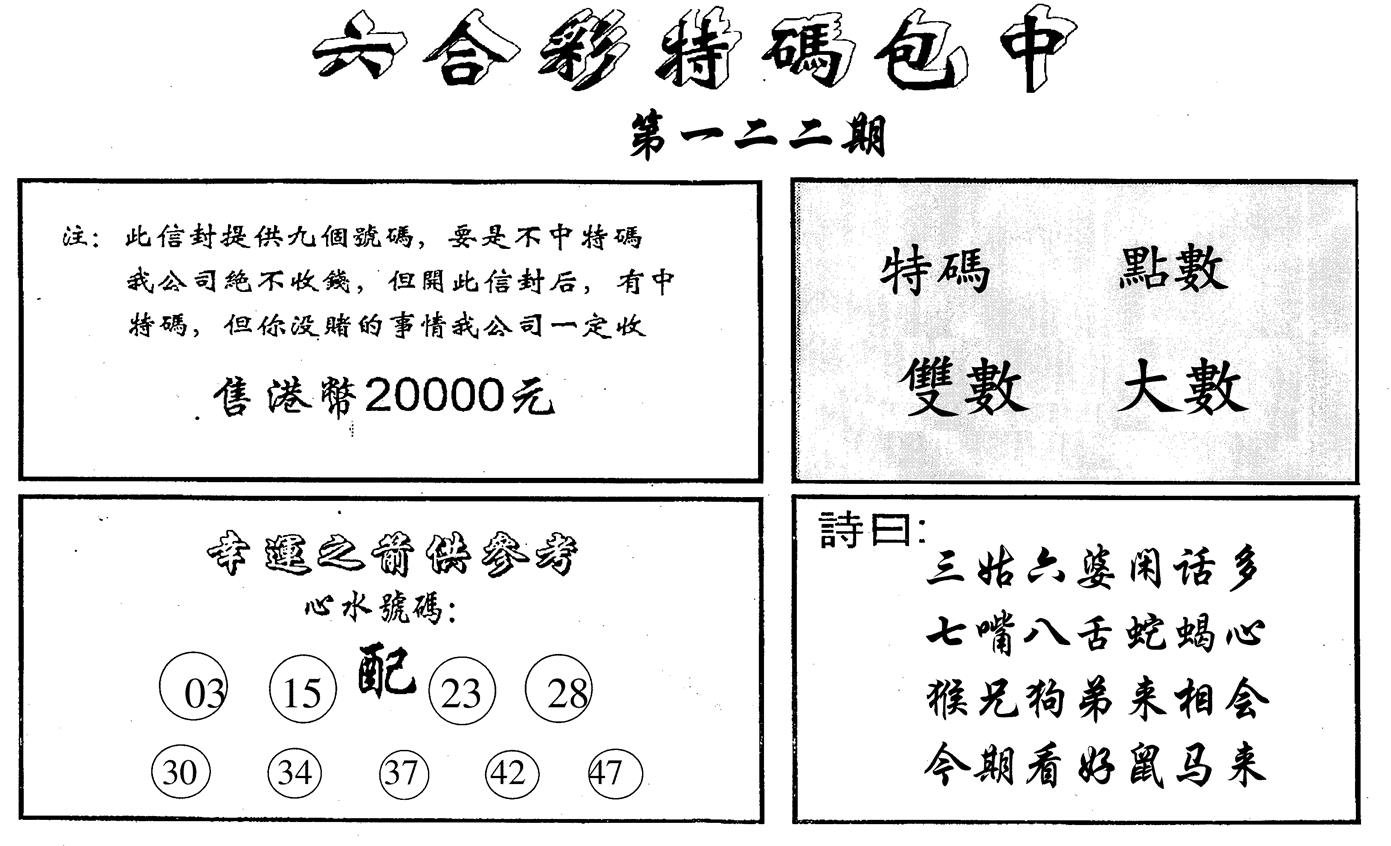 六合彩特碼包中
第一二二期
注：此信封提供九個號碼，要是不中特碼
我公司絕不收錢，但開此信封后，有中
特碼，但你没賭的事情我公司一定收
售港幣20000元
特碼 點數
雙數 大數
幸運之箭供參考
心水號碼：
03 15 配 23 28
30 34 37 42 47
詩曰：
三姑六婆闲话多
七嘴八舌蛇蝎心
猴兄狗弟来相会
今期看好鼠马来